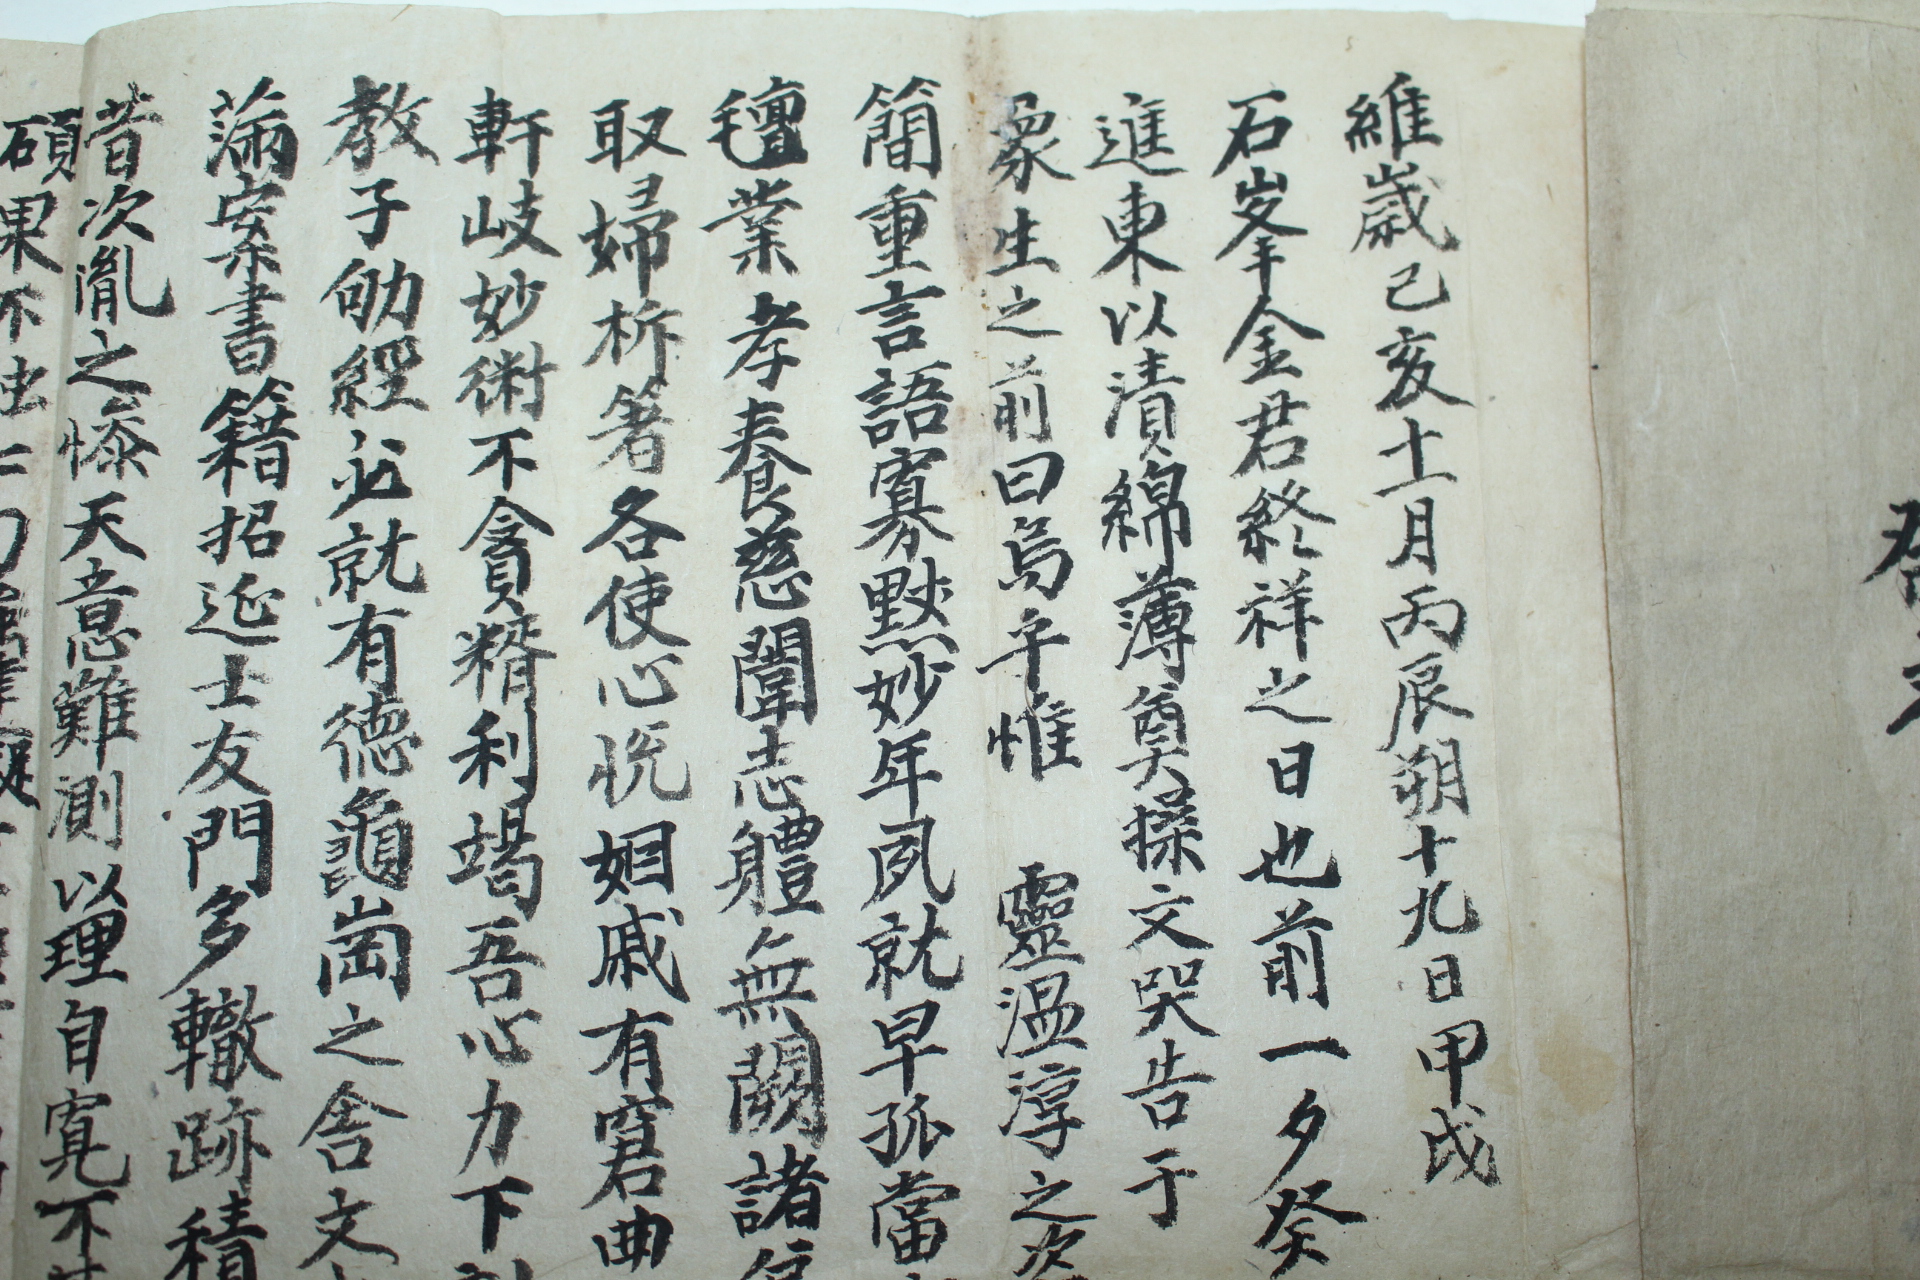 維歲己亥十一月丙辰朔十九日甲戌
石峯金君終祥之日也前一夕癸
進東以漬綿薄奠操文哭告于
象生之前曰烏乎惟 靈溫淳之姿
簡重言語寡默妙年夙就早孤當
氊業孝養慈闈志軆無闕諸
取婦析箸各使心悅姻戚有窘曲
軒岐妙術不貪糈利竭吾心力下
教子劬經必就有德龜崗之舍文
滿案書籍招延士友門多轍跡積
昔次胤之慘天意難測以理自寬不
碩果不